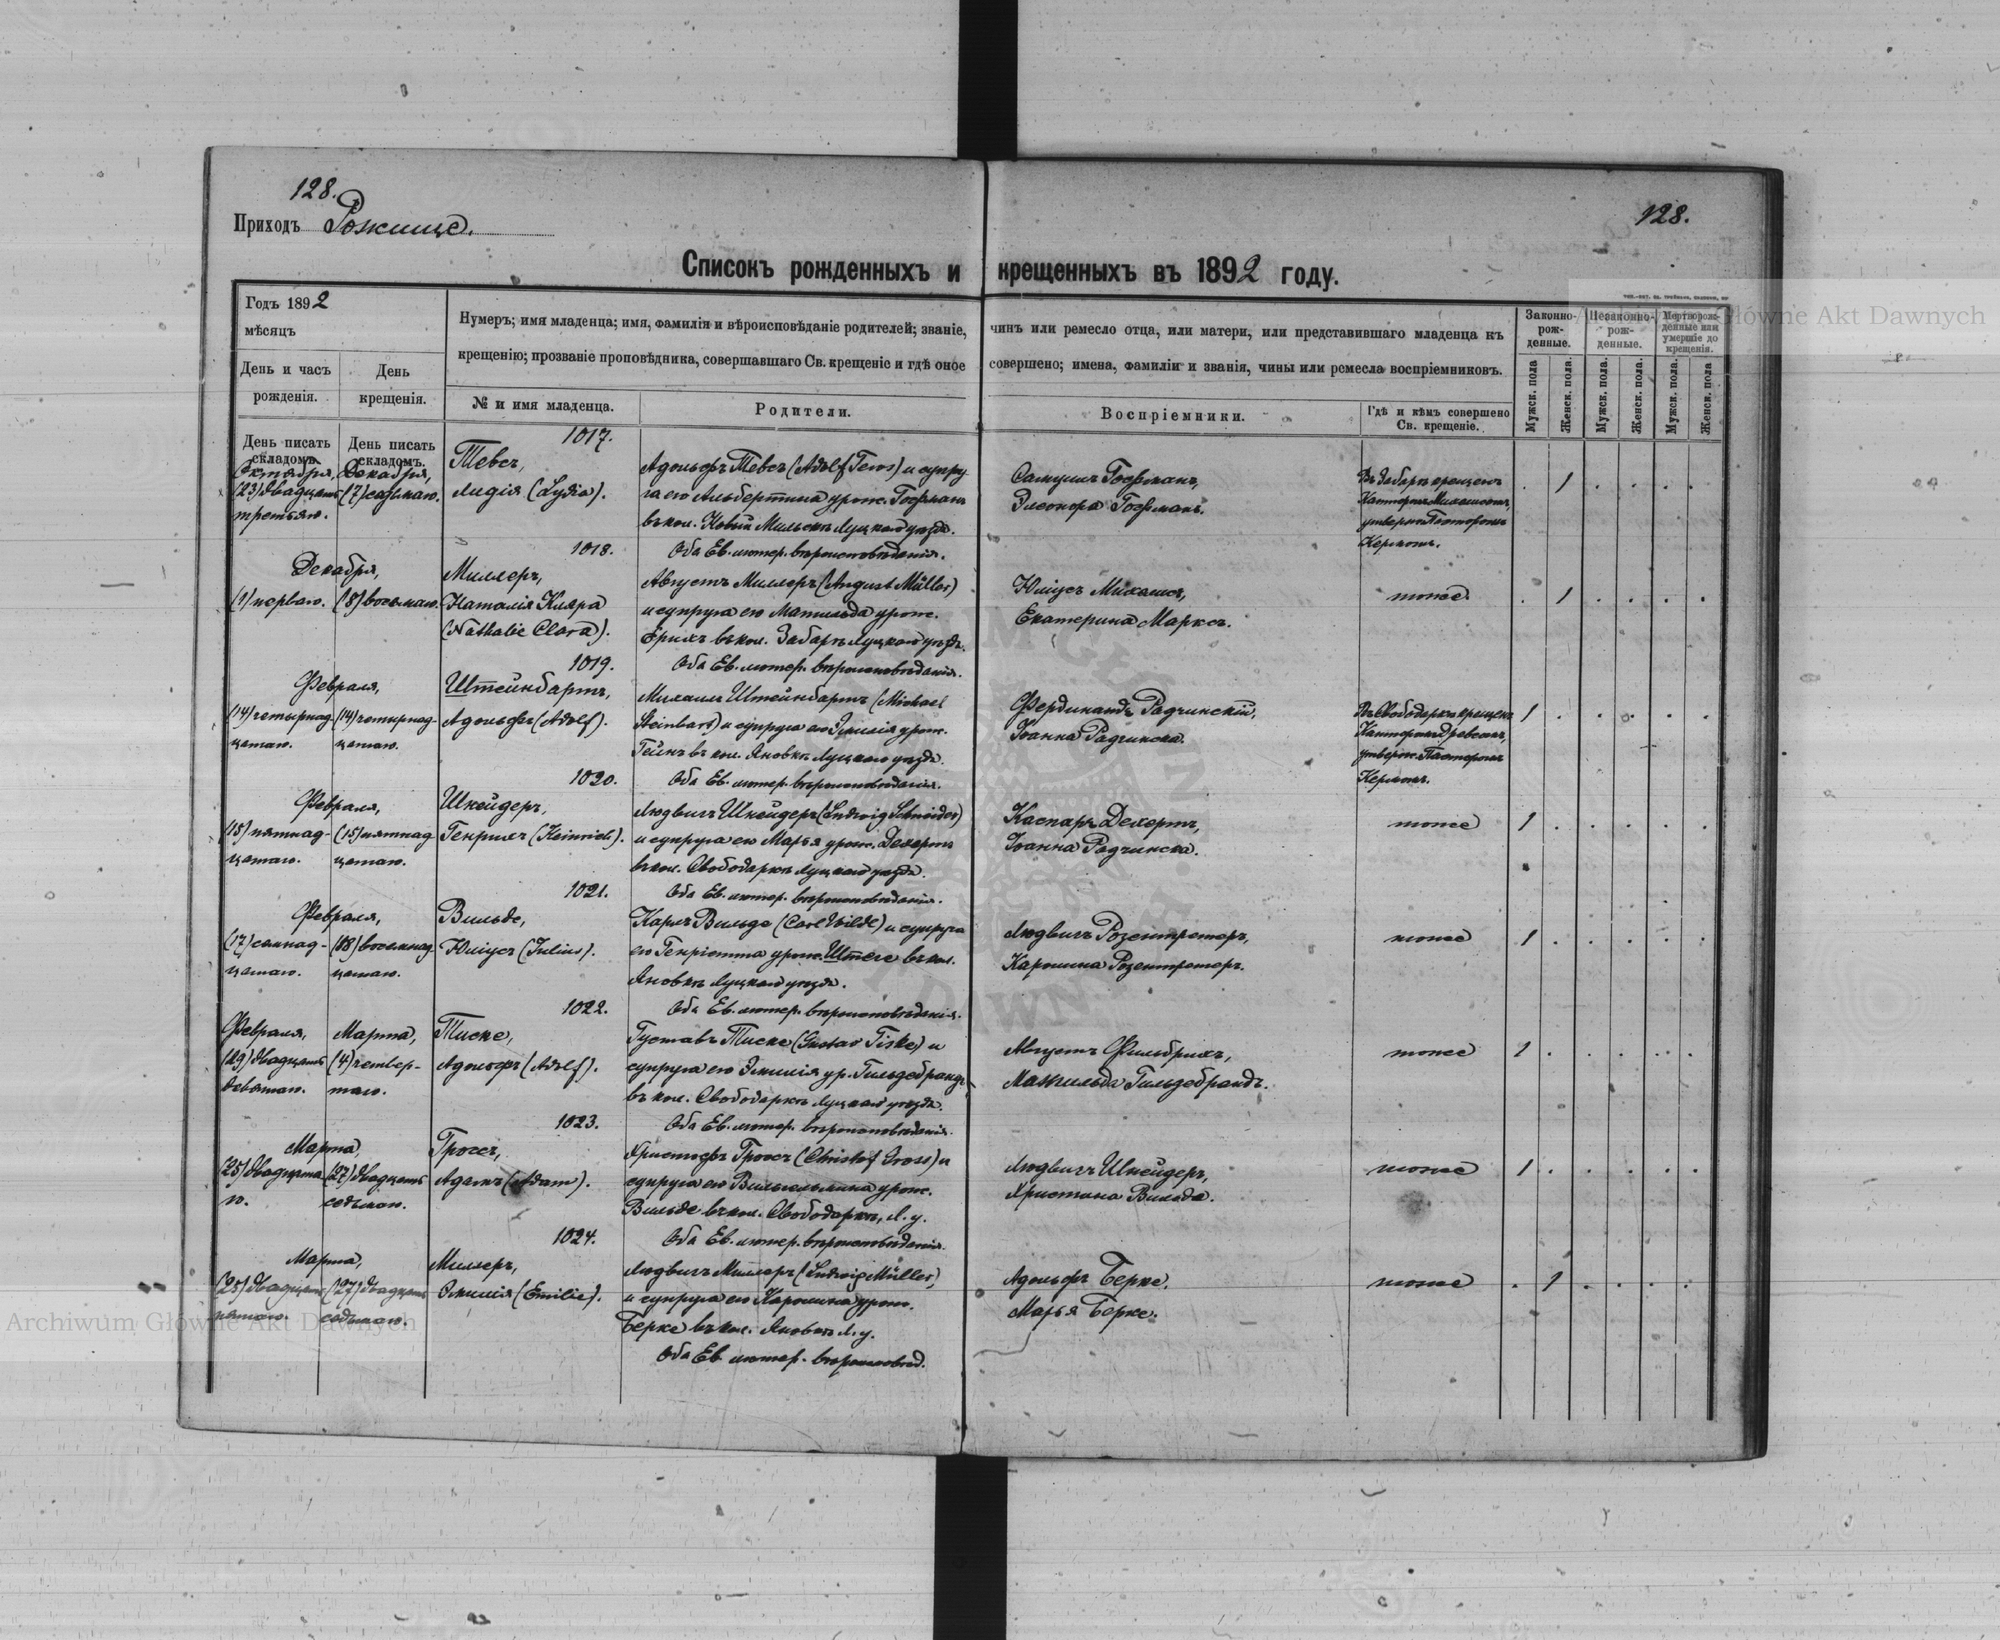 128.
Приходъ Рожище.
128.
Списокъ рожденныхъ и крещенныхъ въ 1892 году.
Годъ 1892
мѣсяцъ
День и часъ рожденія.
День крещенія.
Нумеръ; имя младенца; имя, фамилія и вѣроисповѣданіе родителей; званіе, чинъ или ремесло отца, или матери, или представившаго младенца къ
крещенію; прозваніе проповѣдника, совершавшаго Св. крещеніе и гдѣ оное совершено; имена, фамиліи и званія, чины или ремесла воспріемниковъ.
№ и имя младенца.
Родители.
Воспріемники.
Гдѣ и кѣмъ совершено Св. крещеніе.
Законно-рож-денные.
Незаконно-рож-денные.
Мертворож-денные или умершіе до крещенія.
Мужск. пола
Женск. пола.
Мужск. пола.
Женск. пола.
Мужск. пола.
Женск. пола
День писать складомъ.
День писать складомъ.
1017.
Октября,
(23) двадцать
третьяго.
Декабря,
(7) седьмаго.
Тевсъ,
Лидія (Lydia).
Адольфъ Тевсъ (Adolf Tews) и супру-
га его Альбертина урож. Гофманъ
въ кол. Новый Мильскъ Луцкаго уѣзда.
Оба Ев. лютер. вѣроисповѣданія.
Самуилъ Гофманъ,
Элеонора Гофманъ.
Въ Забарѣ крещенъ
Канторомъ Михаилисомъ,
утвержд. Пасторомъ
Керномъ.
. 1 . . . .
1018.
Декабря,
(1) перваго.
(8) восьмаго.
Миллеръ,
Наталія Клара
(Nathalie Clara).
Августъ Миллеръ (August Müller)
и супруга его Матильда урож.
Ерихъ въ кол. Забара Луцкаго уѣзда.
Оба Ев. лютер. вѣроисповѣданія.
Юліусъ
Екатерина Марксъ.
тоже
. 1 . . . .
1019.
Февраля,
(14) четырнад-
цатаго.
(14) четырнад-
цатаго.
Штейнбартъ,
Адольфъ (Adolf).
Михаилъ Штейнбартъ (Michael
Steinbart) и супруга его Эмилія урож.
Гейнъ въ кол. Яновкѣ Луцкаго уѣзда.
Оба Ев. лютер. вѣроисповѣданія.
Фердинандъ Радчинскій,
Іоанна Радчинска.
Въ Свободаркѣ крещенъ
Канторомъ
утвержд. Пасторомъ
Керномъ.
1 . . . . .
1020.
Февраля,
(15) пятнад-
цатаго.
(15) пятнад-
цатаго.
Шнейдеръ,
Генрихъ (Heinrich).
Людвигъ Шнейдеръ (Ludwig Schneider)
и супруга его Марья урож. Дехертъ
въ кол. Свободаркѣ Луцкаго уѣзда.
Оба Ев. лютер. вѣроисповѣданія.
Каспаръ Дехертъ,
Іоанна Радчинска.
тоже
1 . . . . .
1021.
Февраля,
(17) семнад-
цатаго.
(18) восемнад
цатаго.
Вильде,
Юліусъ (Julius).
Карлъ Вильде (Carl Wilde) и супруга
его Генріетта урож. Штеге въ кол.
Яновкѣ Луцкаго уѣзда.
Оба Ев. лютер. вѣроисповѣданія.
Людвигъ Розентретеръ,
Каролина Розентретеръ.
тоже
1 . . . . .
1022.
Февраля,
(29) двадцать
девятаго.
Марта,
(4) четвер-
таго.
Тиске,
Адольфъ (Adolf).
Густавъ Тиске (Gustav Tiske) и
супруга его Эмилія ур. Гильдебрандъ
въ кол. Свободаркѣ Луцкаго уѣзда.
Оба Ев. лютер. вѣроисповѣданія.
Августъ Фильбрихъ,
Матильда Гильдебрандъ.
тоже
1 . . . . .
1023.
Марта,
(25) двадцата
го.
(27) двадцать
седьмаго.
Гроссъ,
Адамъ (Adam).
Христофъ Гроссъ (Christof Gross) и
супруга его Вильгельмина урож.
Вильде въ кол. Свободаркѣ, Л. у.
Оба Ев. лютер. вѣроисповѣданія.
Людвигъ Шнейдеръ,
Христина Вильде.
тоже
1 . . . . .
1024.
Марта,
(25) двадцать
пятаго.
(27) двадцать
седьмаго.
Миллеръ,
Эмилія (Emilie).
Людвигъ Миллеръ (Ludwig Müller)
и супруга его Каролина урож.
Берке въ кол. Яновкѣ Л. у.
Оба Ев. лютер. вѣроисповѣд.
Адольфъ Берке,
Марья Берке.
тоже
. 1 . . . .
Archiwum Główne Akt Dawnych
Archiwum Główne Akt Dawnych